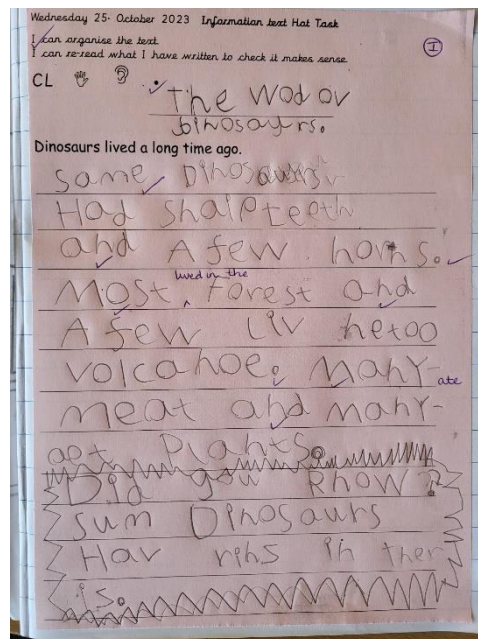 Wednesday 25. October 2023 Information text Hot Task
I can organise the text.
I can re-read what I have written to check it makes sense.
I
CL
The Wod ov
Dinosaurs.
Dinosaurs lived a long time ago.
Same Dinosaurs
Had shalpteeth
and A few horns.
lived in the
Most Forest and
A few Liv hetoo
volcahoe. Many
ate
meat and many
aet Plants.
Did you Rhow?
sum Dinosaurs
Hav rihs in ther
is.